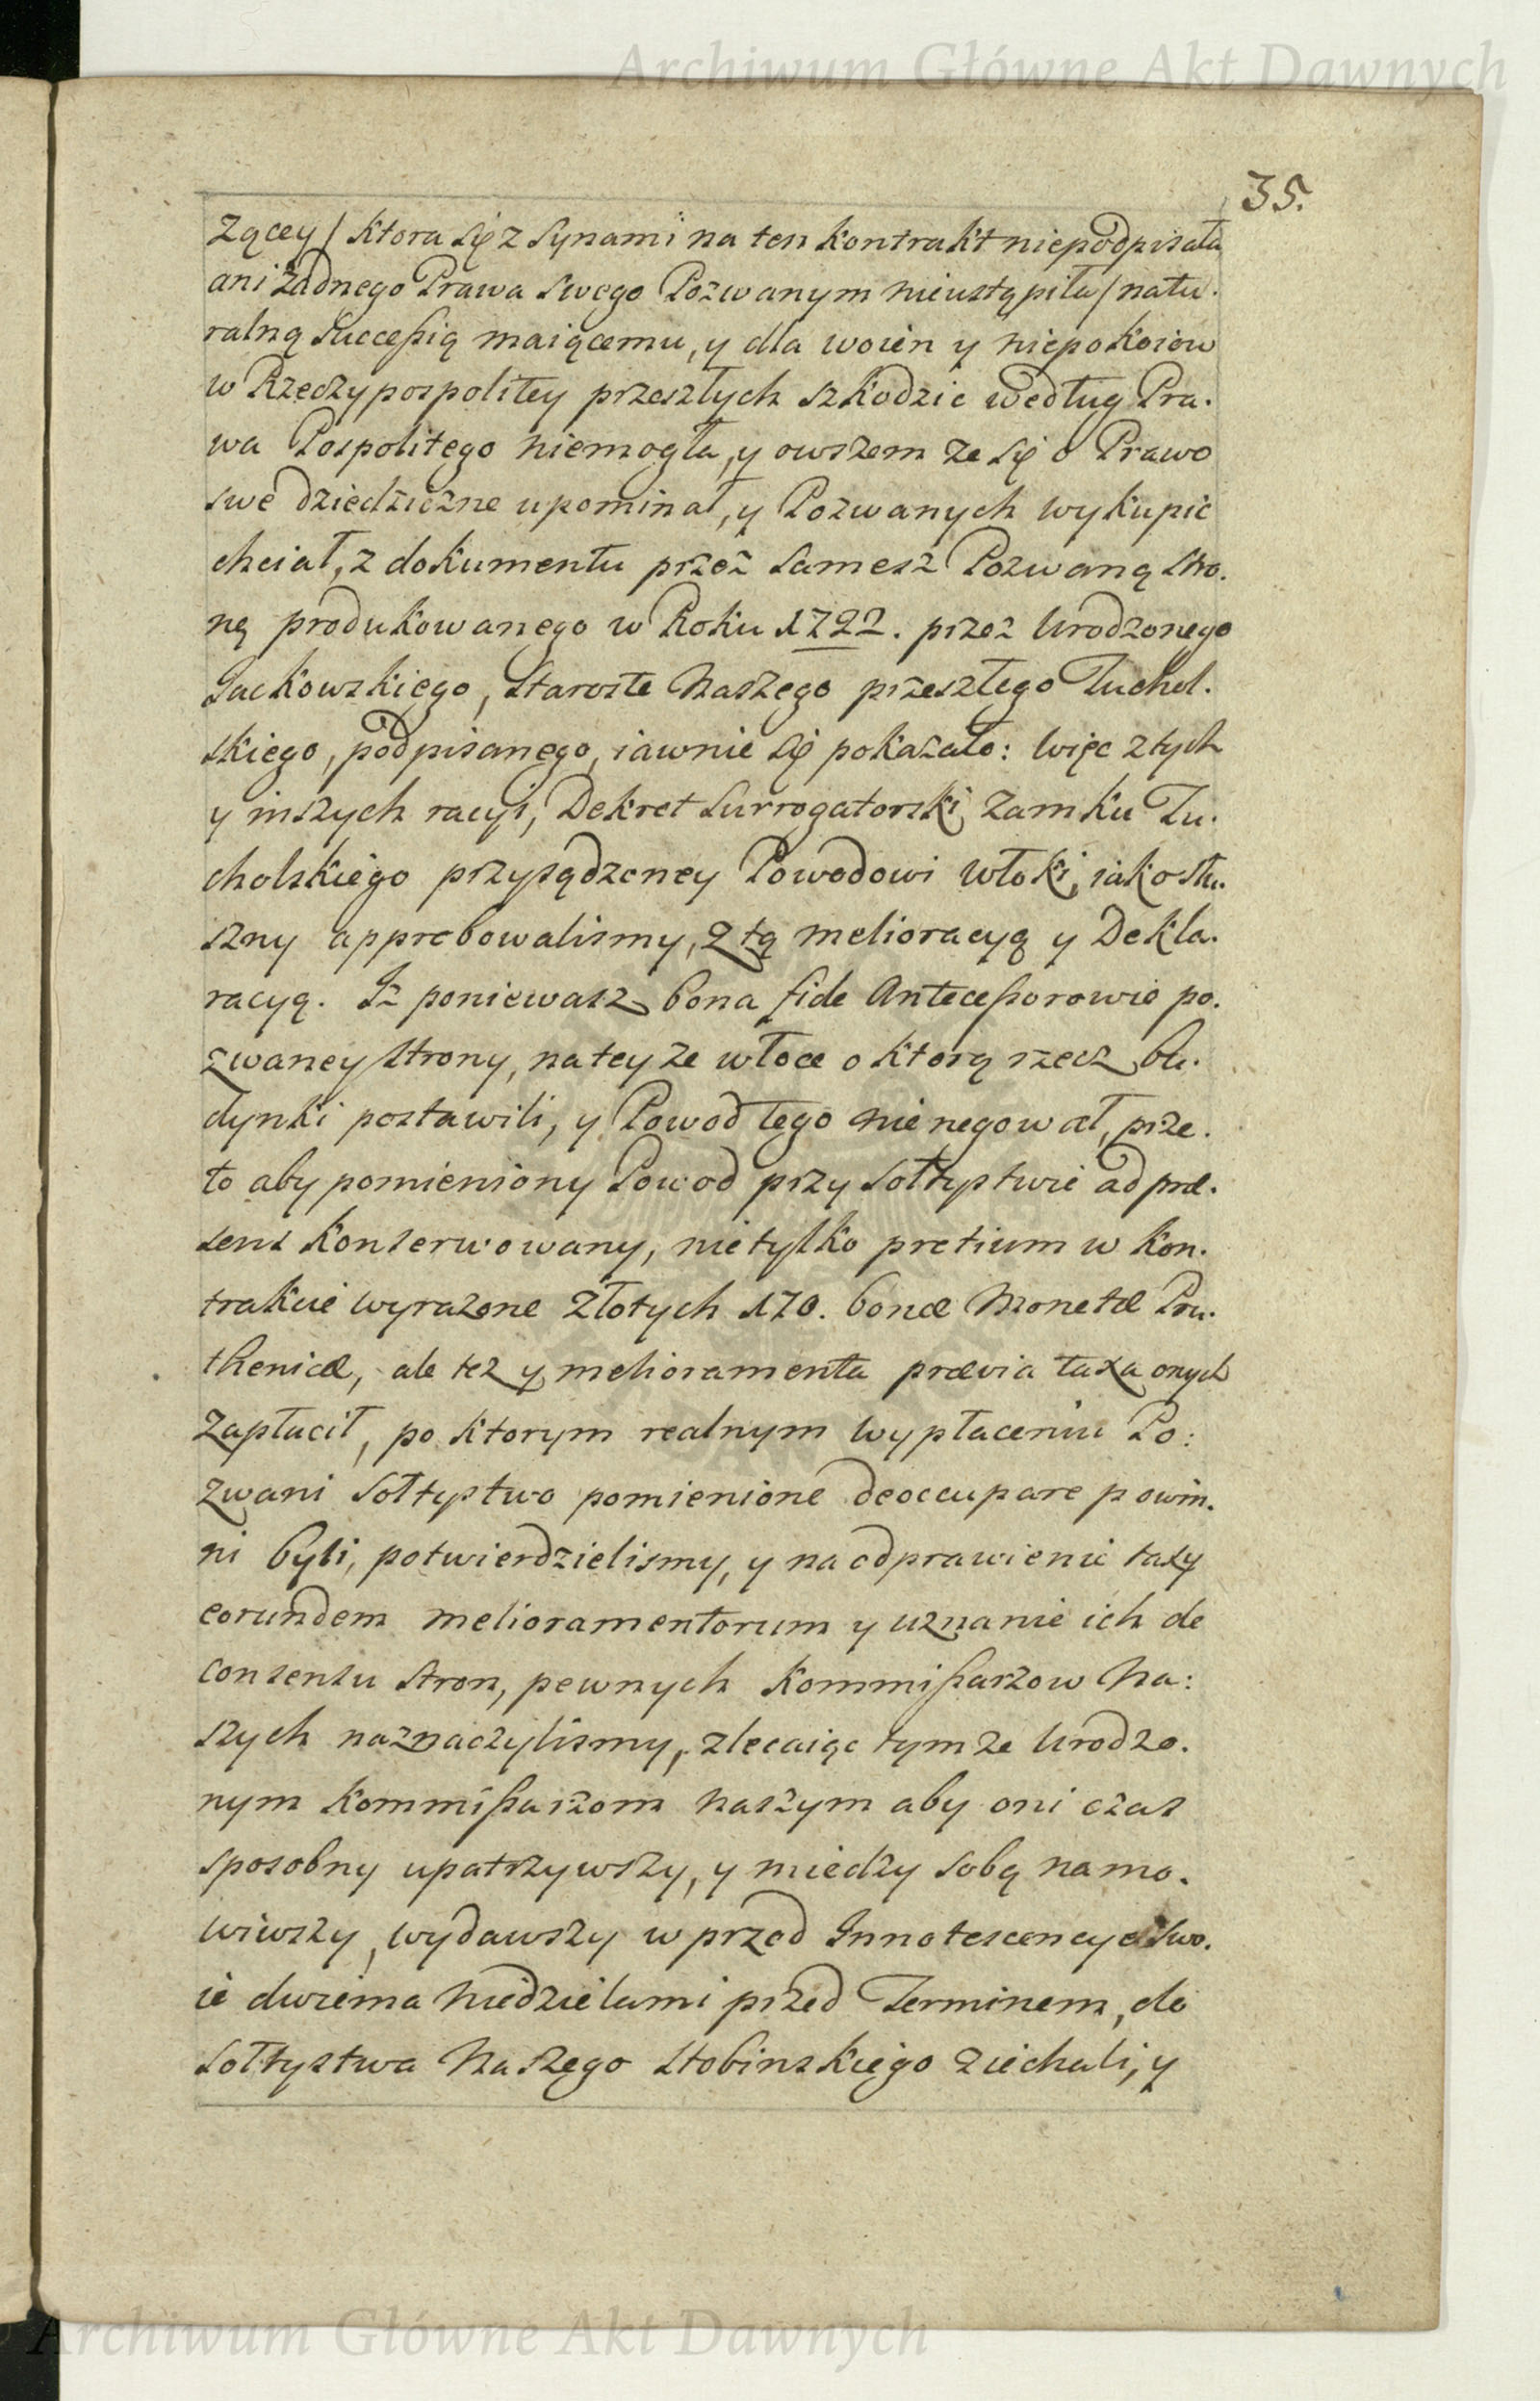 Archiwum Główne Akt Dawnych
35.
Zącey / ktora się z Synami na ten kontrakt niepodpisała
ani żadnego Prawa Swego Pozwanym nieustąpiła / natu.
ralną Successią maiącemu, y dla woien y niepokoiow
w Rzeczypospolitey przeszłych szkodzic według Pra.
wa Pospolitego niemogła, y owszem ze się o Prawo
swe dziedziczne upominał, y Pozwanych wykupic
chciał, z dokumentu przez Samesz Pozwaną Stro.
nę produkowanego w Roku 1722. przez Urodzonego
Lackowskiego, Staroste Naszego przeszłego Tuchol.
skiego, podpisanego, iawnie się pokazało: Więc z tych
y inszych racyi, Dekret Surrogatorski Zamku Tu.
cholskiego przysądzoney Powodowi Włoki, iako słu.
szny approbowalismy, z tą melioracyą y Dekla.
racyą. Iz poniewasz bona fide Antecessorowie po.
zwaney Strony, na tey ze włoce o ktorą rzecz bu.
dynki postawili, y Powod tego nie negował, prze.
to aby pomieniony Powod przy Sołtystwie ad præ.
sens konserwowany, nie tylko pretium w kon.
trakcie wyrazone Złotych 170. bonæ Monetæ Pru.
thenicæ, ale tez y melioramenta prævia taxa onych
zapłacił, po ktorym realnym wypłaceniu Po:
zwani Sołtystwo pomienione deoccupare powin.
ni byli, potwierdzielismy, y na odprawienie taxy
eorundem melioramentorum y uznanie ich de
consensu Stron, pewnych Kommissarzow Na:
szych naznaczylismy, zlecaiąc tymze Urodzo.
nym Kommissarzom naszym aby oni czas
sposobny upatrzywszy, y miedzy sobą namo.
wiwszy, wydawszy w przod Innotescencye Swo.
ie dwiema Niedzielami przed Terminem, do
Sołtystwa Naszego Stobinskiego ziechali, y
Archiwum Główne Akt Dawnych